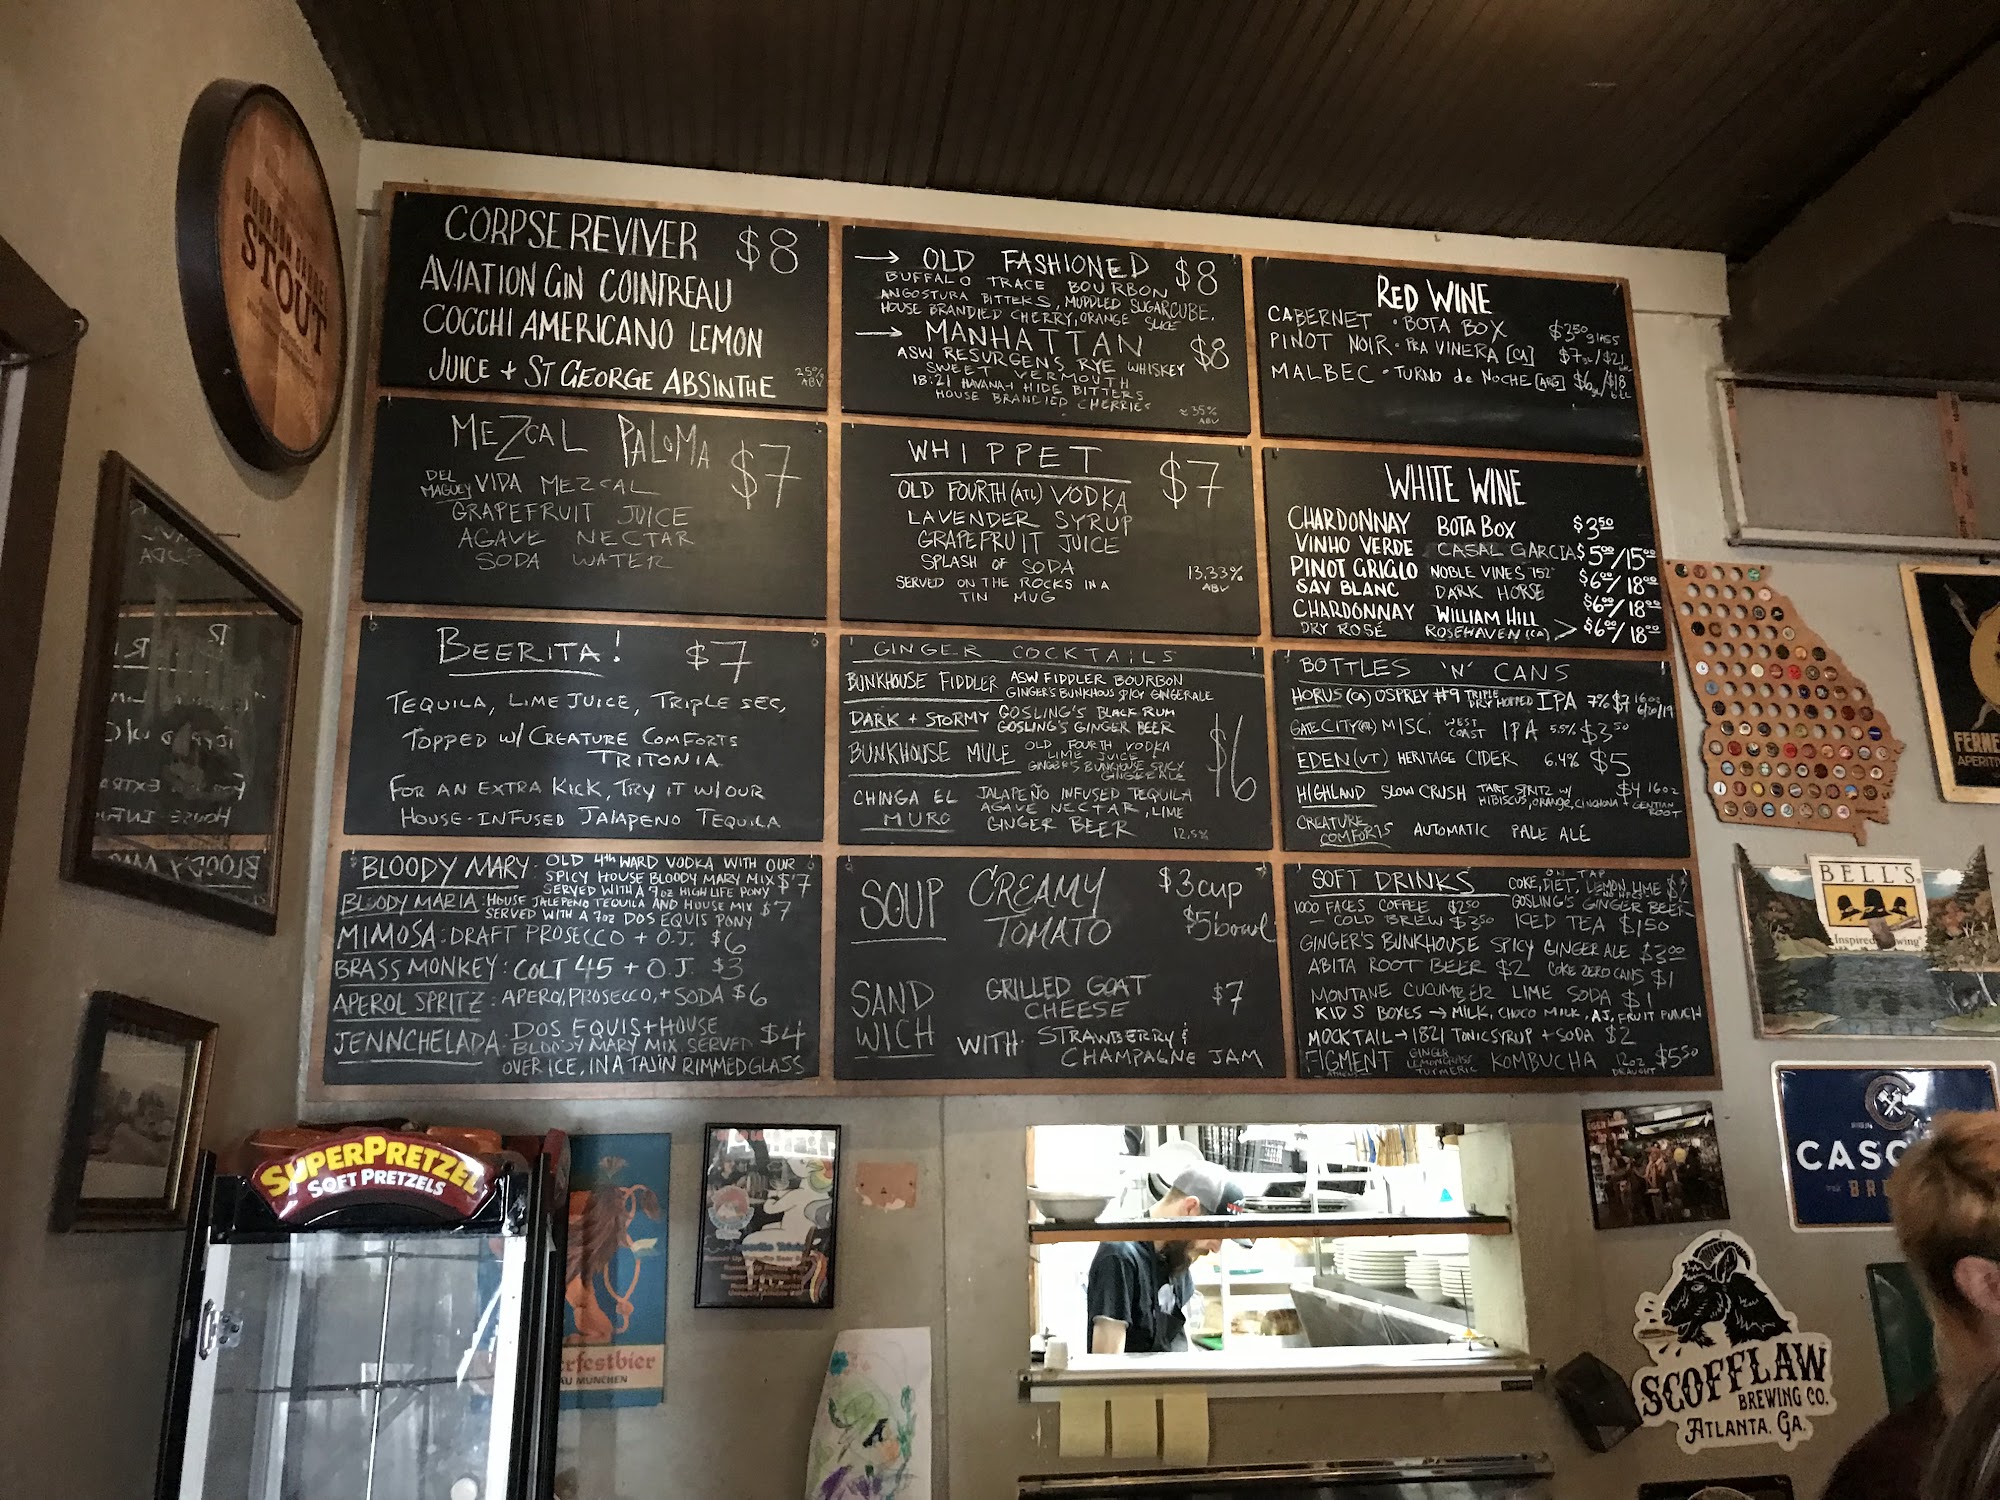 BOURBON BARREL
STOUT
CORPSE REVIVER $8
AVIATION GIN COINTREAU
COCCHI AMERICANO LEMON
JUICE + ST GEORGE ABSINTHE
25% ABV
→ OLD FASHIONED $8
BUFFALO TRACE BOURBON
ANGOSTURA BITTERS, MUDDLED SUGARCUBE,
HOUSE BRANDIED CHERRY, ORANGE SLICE
→ MANHATTAN $8
ASW RESURGENS RYE WHISKEY
SWEET VERMOUTH
18:21 HAVANA & HIDE BITTERS
HOUSE BRANDIED CHERRIES
≈35% ABV
RED WINE
CABERNET · BOTA BOX $3.50 glass
PINOT NOIR · VINERA [CA]
MALBEC · TURNO de NOCHE [ARG]
MEZCAL PALOMA $7
DEL MAGUEY VIDA MEZCAL
GRAPEFRUIT JUICE
AGAVE NECTAR
SODA WATER
WHIPPET $7
OLD FOURTH (ATL) VODKA
LAVENDER SYRUP
GRAPEFRUIT JUICE
SPLASH OF SODA
SERVED ON THE ROCKS IN A
TIN MUG
13.33% ABV
WHITE WINE
CHARDONNAY BOTA BOX $3.50
VINHO VERDE CASAL GARCIA $5.00/15.00
PINOT GRIGIO NOBLE VINES 152 $6.00/18.00
SAV BLANC DARK HORSE $6.00/18.00
CHARDONNAY WILLIAM HILL
DRY ROSÉ ROSEHAVEN (CA) > $6.00/18.00
BEERITA! $7
TEQUILA, LIME JUICE, TRIPLE SEC,
TOPPED W/ CREATURE COMFORTS
TRITONIA
FOR AN EXTRA KICK, TRY IT W/ OUR
HOUSE-INFUSED JALAPENO TEQUILA
GINGER COCKTAILS
BUNKHOUSE FIDDLER ASW FIDDLER BOURBON
GINGER'S BUNKHOUS SPICY GINGERALE
DARK + STORMY GOSLING'S BLACK RUM
GOSLING'S GINGER BEER
BUNKHOUSE MULE OLD FOURTH VODKA
LIME JUICE
GINGER'S BUNKHOUSE SPICY
GINGER ALE
$6
CHINGA EL MURO JALAPEÑO INFUSED TEQUILA
AGAVE NECTAR, LIME
GINGER BEER
12.5%
BOTTLES 'N' CANS
HORUS (CA) OSPREY #9 TRIPLE DRY HOPPED IPA 7% $7 16oz
GATE CITY (GA) MISC. WEST COAST IPA 5.5% $3.50
EDEN (VT) HERITAGE CIDER 6.4% $5
HIGHLAND SLOW CRUSH TART SPRITZ W/ $4 16oz
HIBISCUS, ORANGE, CINCHONA + GENTIAN ROOT
CREATURE COMFORTS AUTOMATIC PALE ALE
BLOODY MARY: OLD 4th WARD VODKA WITH OUR
SPICY HOUSE BLOODY MARY MIX $7
SERVED WITH A 7oz HIGH LIFE PONY
BLOODY MARIA: HOUSE JALEPENO TEQUILA AND HOUSE MIX $7
SERVED WITH A 7oz DOS EQUIS PONY
MIMOSA: DRAFT PROSECCO + O.J. $6
BRASS MONKEY: COLT 45 + O.J. $3
APEROL SPRITZ: APEROL, PROSECCO, + SODA $6
JENNCHELADA: DOS EQUIS + HOUSE $4
BLOODY MARY MIX SERVED
OVER ICE, IN A TAJIN RIMMED GLASS
SOUP CREAMY TOMATO $3 cup
$5 bowl
SANDWICH GRILLED GOAT CHEESE $7
WITH STRAWBERRY &
CHAMPAGNE JAM
SOFT DRINKS
ON TAP
COKE, DIET, LEMON LIME
1000 FACES COFFEE $2.50 GOSLING'S GINGER BEER
COLD BREW $3.50 ICED TEA $1.50
GINGER'S BUNKHOUSE SPICY GINGER ALE $3.00
ABITA ROOT BEER $2 COKE ZERO CANS $1
MONTANE CUCUMBER LIME SODA $1
KIDS BOXES → MILK, CHOCO MILK, AJ, FRUIT PUNCH
MOCKTAIL → 1821 TONIC SYRUP + SODA $2
FIGMENT GINGER LEMONGRASS TURMERIC KOMBUCHA 12oz DRAUGHT $5.50
ATHENS
FERNE
APERITI
BELL'S
Inspired Brewing
CASC
BR
SUPERPRETZEL
SOFT PRETZELS
erfestbier
AU MÜNCHEN
SCOFFLAW
BREWING CO.
ATLANTA, GA.